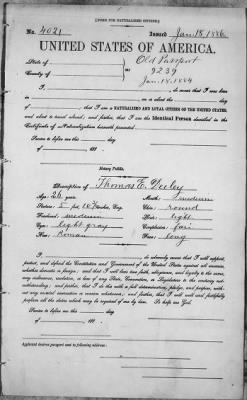 [FORM FOR NATURALIZED CITIZEN.]
No. 4021 Issued Jan. 18, 1886
UNITED STATES OF AMERICA.
State of Old Passport
County of ss: 9239
Jan. 18. 1884
I, do swear that I was born in
on or about the day of
, that I am a NATURALIZED AND LOYAL CITIZEN OF THE UNITED STATES,
and about to travel abroad; and further, that I am the Identical Person described in the
Certificate of Naturalization herewith presented.
Sworn to before me this day
of 188
Notary Public.
Description of Thomas E.
Age: 26 years Mouth: medium
Stature: 5 feet, inches, Eng. Chin: round
Forehead: medium Hair: light
Eyes: light gray Complexion: fair
Nose: Roman Face: long
I, do solemnly swear that I will support,
protect, and defend the Constitution and Government of the United States against all enemies,
whether domestic or foreign; and that I will bear true faith, allegiance, and loyalty to the same,
any ordinance, resolution, or law of any State, Convention, or Legislature to the contrary not-
withstanding; and further, that I do this with a full determination, pledge, and purpose, with-
out any mental reservation or evasion whatsoever; and further, that I will well and faithfully
perform all the duties which may be required of me by law. So help me God.
Sworn to before me this day
of 188
Applicant desires passport sent to following address: